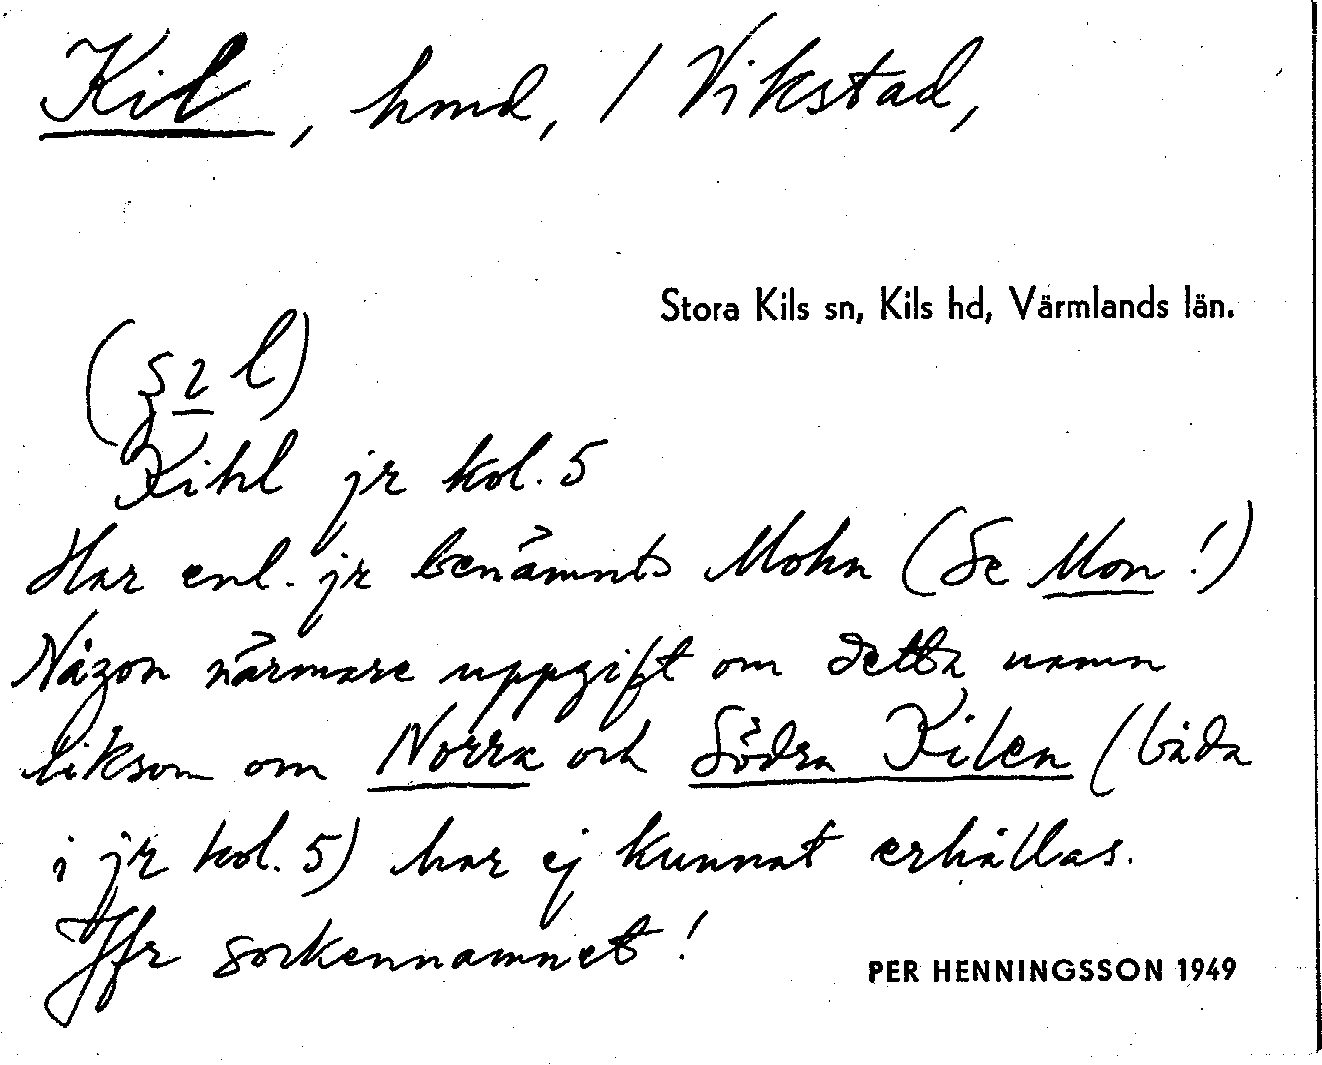 Kil, hmd, / Vikstad,
Stora Kils sn, Kils hd, Värmlands län.
Kihl jr kol. 5
Har enl. jr benämnts Mohn (Se Mon!)
Någon närmare uppgift om detta namn
liksom om Norra och Södra Kilen (båda
i jr kol. 5) har ej kunnat erhållas.
Jfr sockennamnet!
PER HENNINGSSON 1949